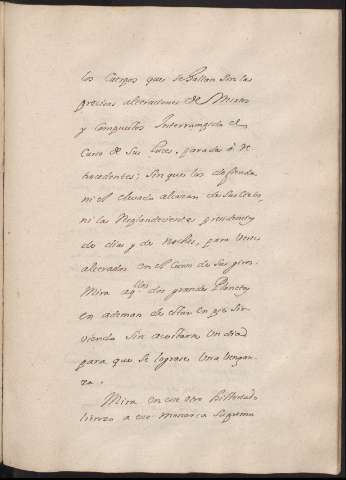 los cuerpos que se hallan sin las
precisas alteraciones de Mixtos
y Compuestos Interrumpido el
Curso de sus luces, parados ó re-
trocedentes; sin que los defienda
ni el elevado alcazar de su Cielo,
ni la Resplandeciente presidencia
de dias y de noches, para verse
alterados en el Curso de sus giros.
Mira aq.llos dos grandes Planetas
en ademan de estar en pie sir-
viendo sin acostarse un dia
para que se lograse una vengan-
za.
Mira en ese otro historiado
lienzo a ese monarca Supremo